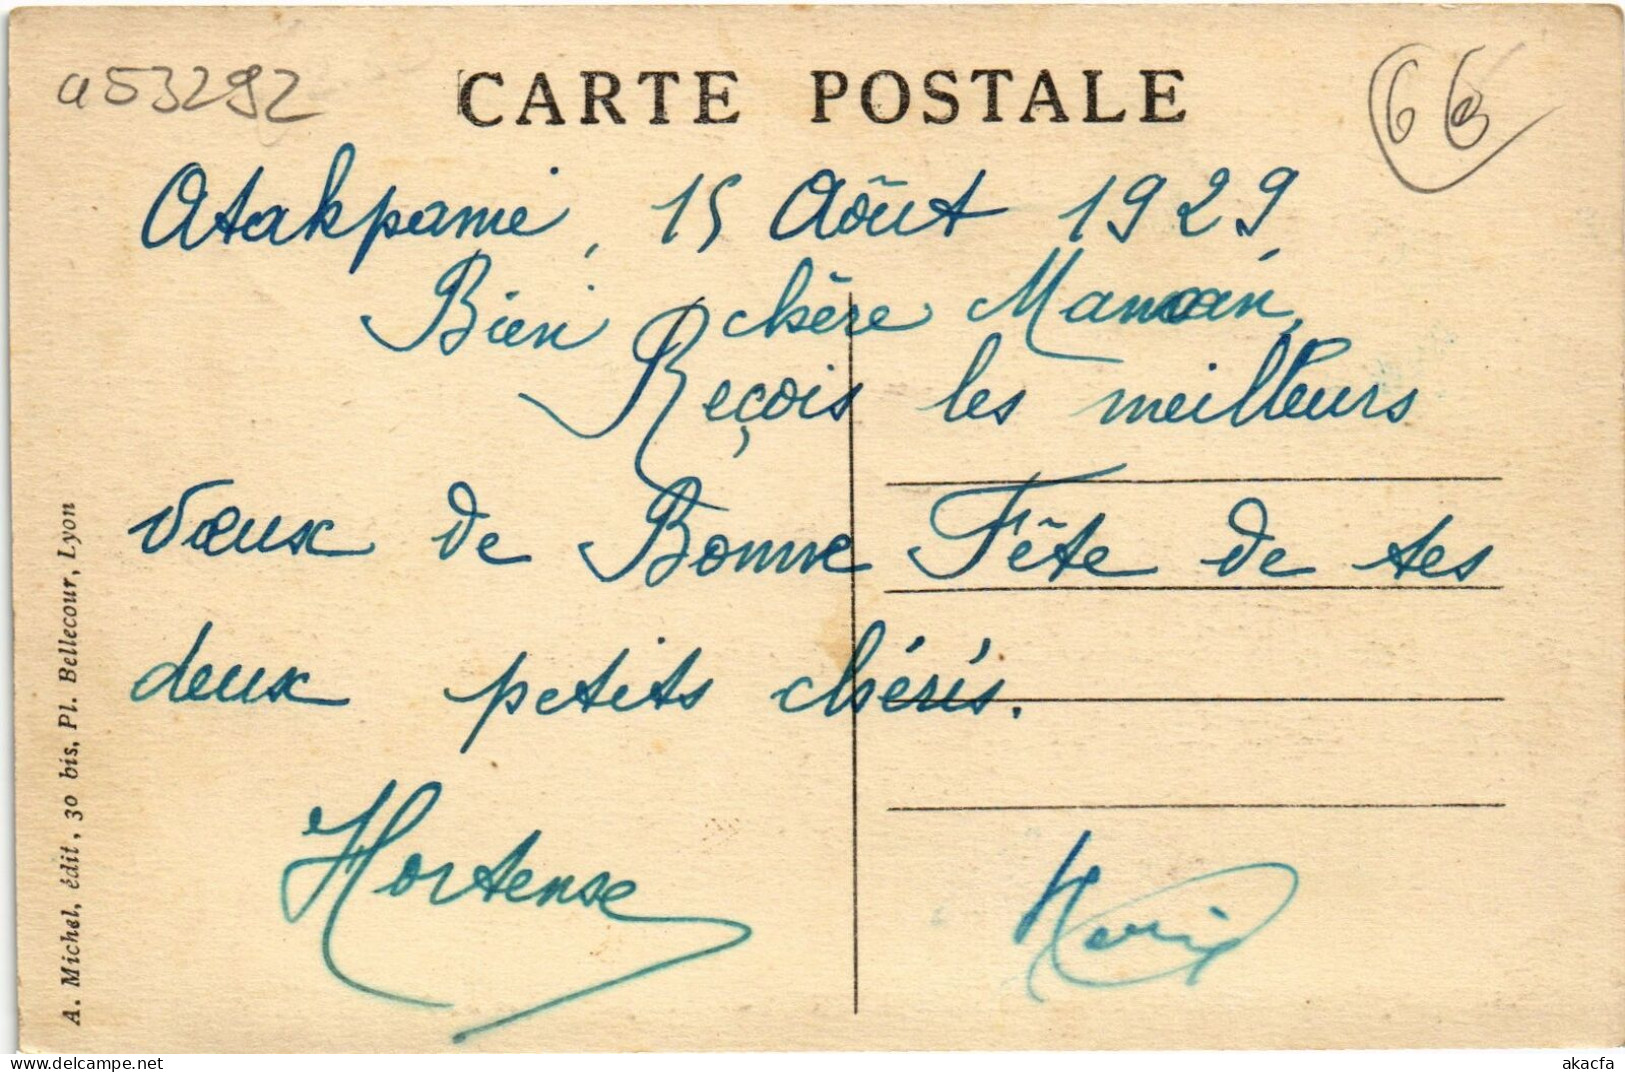 a53292
CARTE POSTALE
66
Atakpamé, 15 Août 1929
Bien chère Maman,
Reçois les meilleurs
vœux de Bonne Fête de tes
deux petits chéris.
Hortense
A. Michel, édit, 30 bis, Pl. Bellecour, Lyon
www.delcampe.net
akacfa